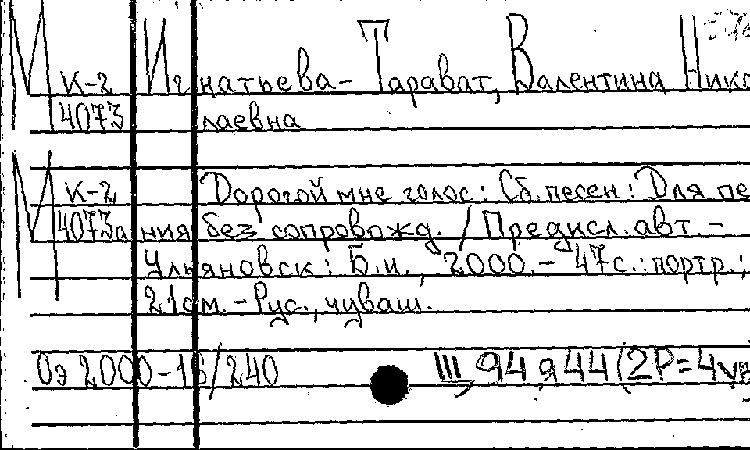 М К-2 Игнатьева-Тарават, Валентина Нико
4073 лаевна
М К-2 Дорогой мне голос: Сб. песен: Для пе
4073а ния без сопровожд. / Предисл. авт. -
Ульяновск: Б.и., 2000. - 47с.: портр.;
21см. - Рус., чуваш.
Оэ 2000-16/240 Щ 94 я 44(2Р=4Ув